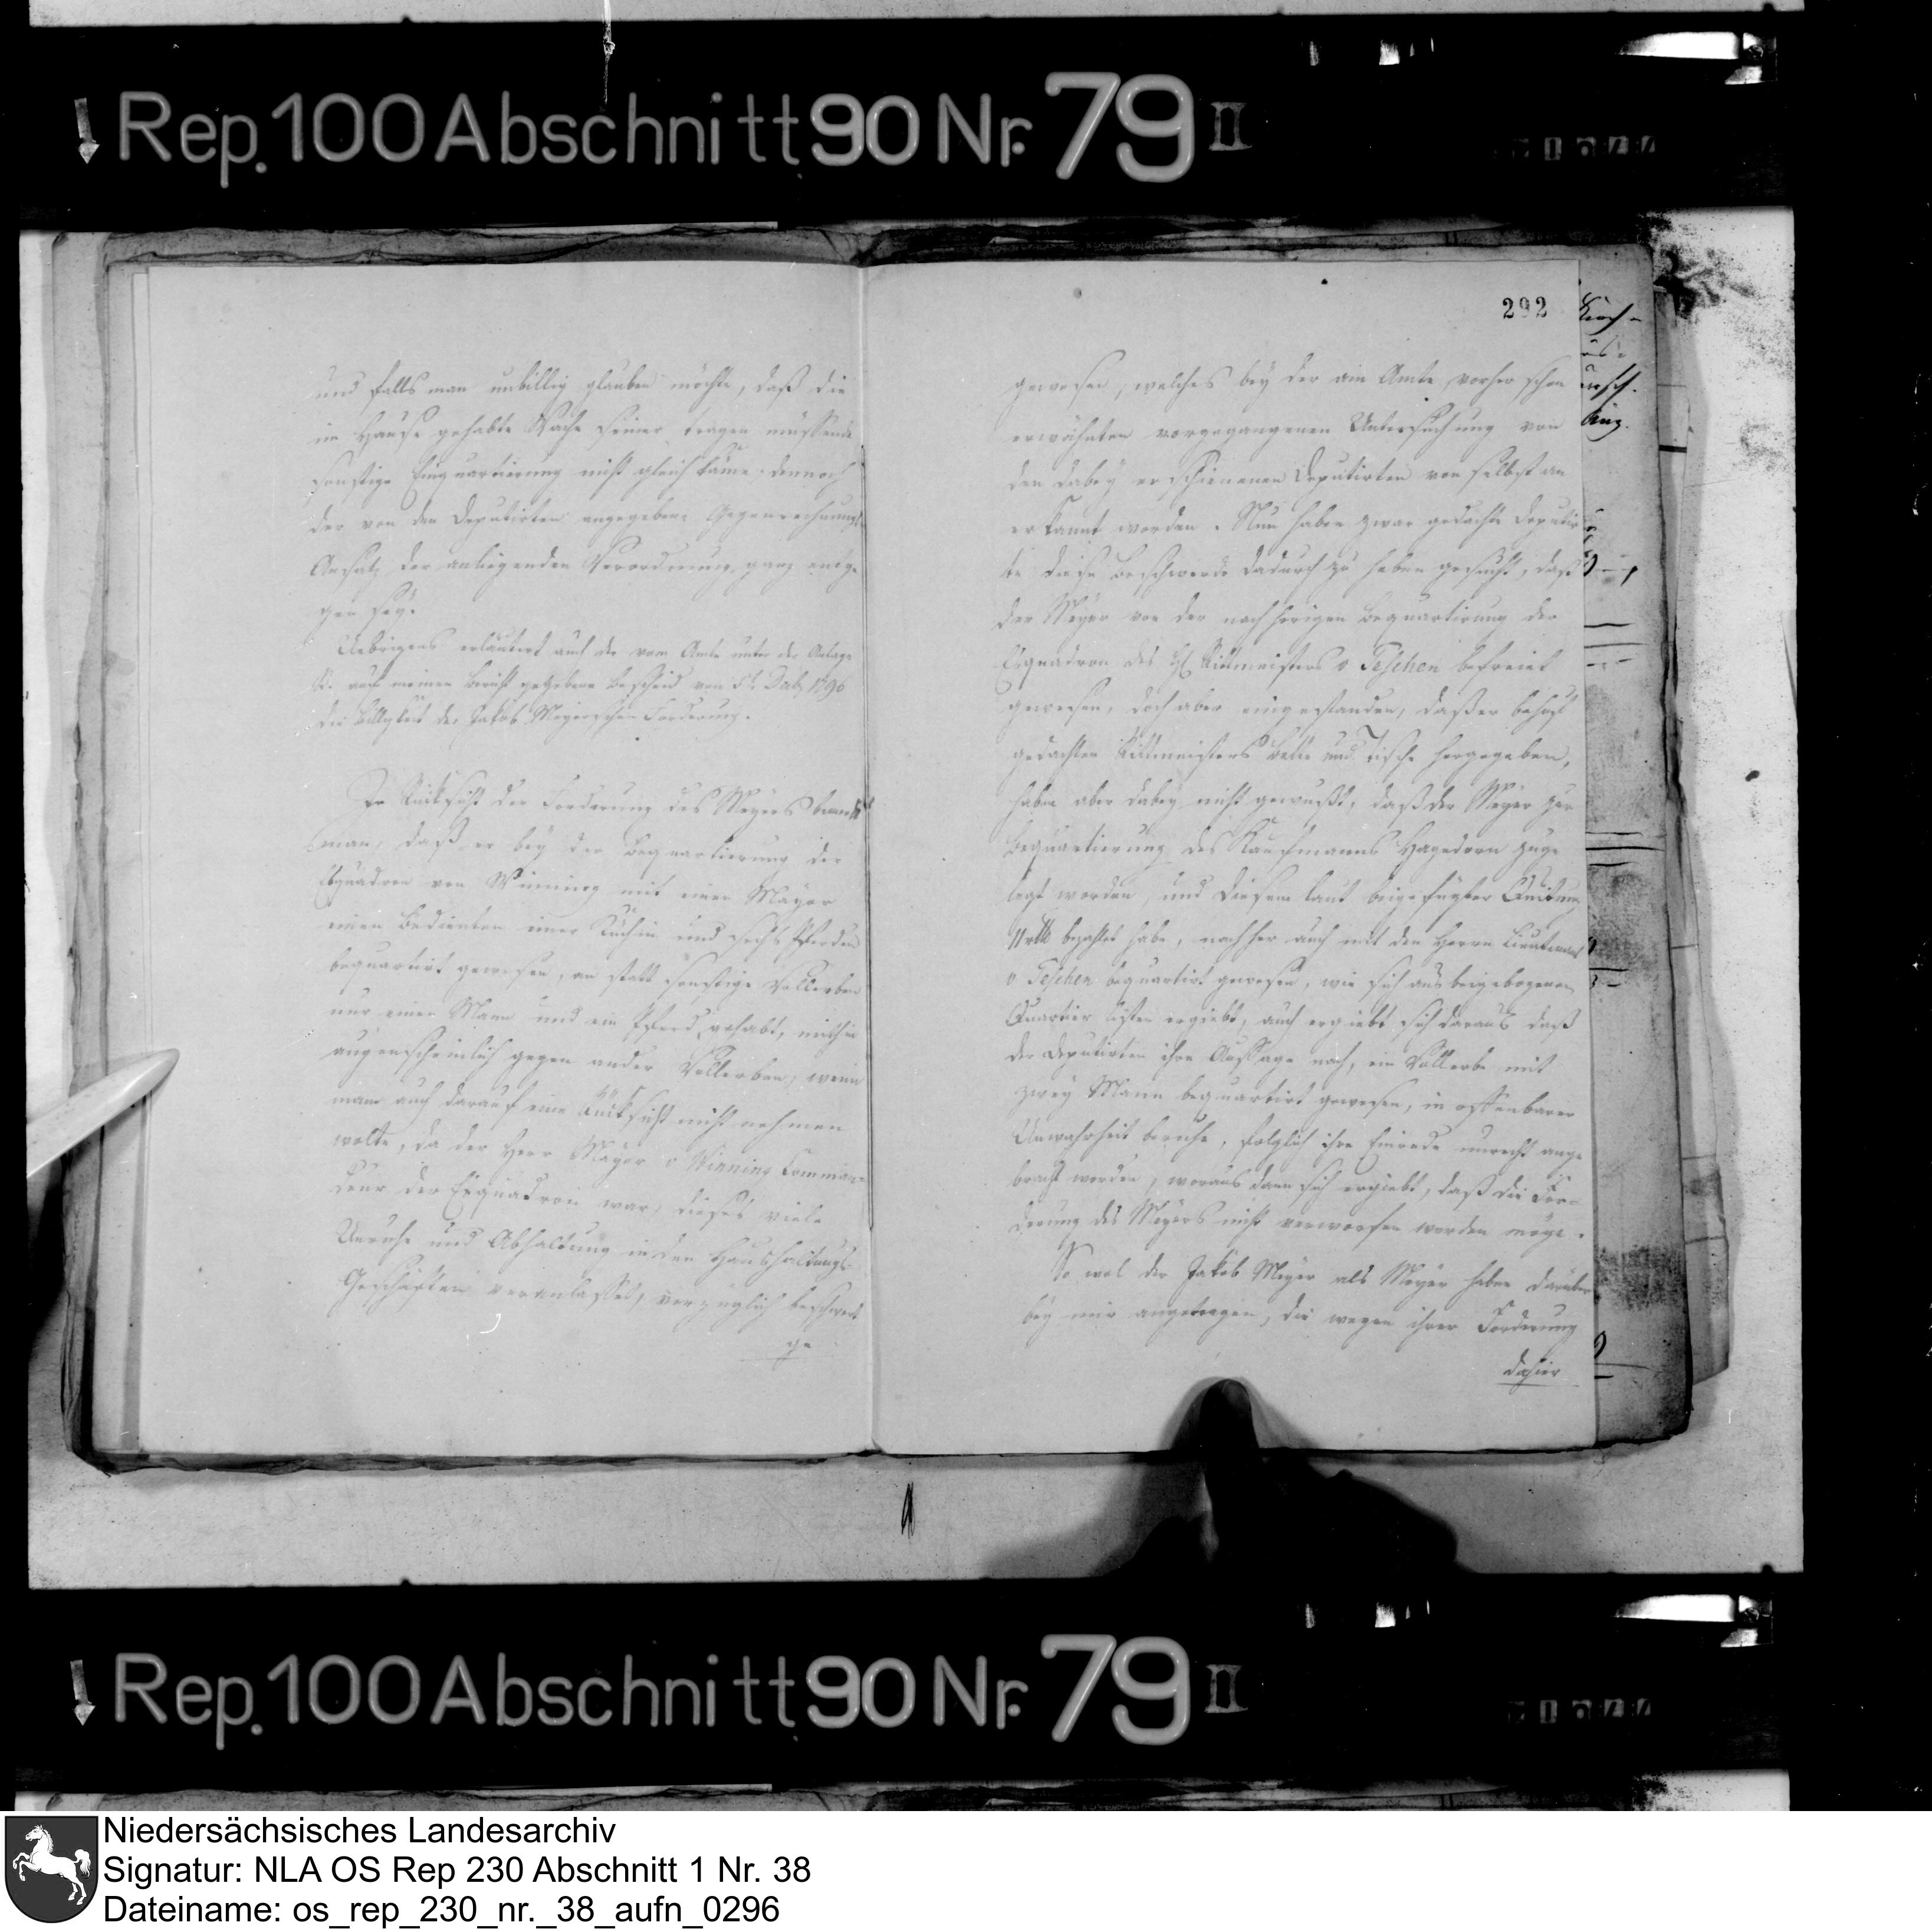 Rep. 100 Abschnitt 90 Nr. 79 II
292
und falls man unbillig glauben möchte, daß die
im Hause gehabte Wache seiner tragen müssende
sonstige Einquartierung nicht gleich käme dennoch
der von den Deputirten angegebene Gegenrechnungs
Ansatz der anliegenden Verordnung ganz entge
gen sey.
Uebrigens erläutert auch der vom Amte unter der Anlage
auf meinen Bericht gegebene Bescheid von 5t 1796
die Billigkeit der Jakob Meyerschen Forderung.
In Rücksicht der Forderung des Meyers bemerkt
man, daß er bey der Bequartierung der
Esquadron von Winning mit einen Mayor
einen Bedienten einer Küchin und sechs Pferden
bequartirt gewesen, an statt sonstige Vollerben
nur einen Mann und ein Pferd gehabt, mithin
augenscheinlich gegen ander Vollerben, wenn
man auch darauf eine Rücksicht nicht nehmen
wolte, da der Herr Mayor v Winning Comman=
deur der Esquadron war, dieses viele
Unruhe und Abhaltung in den Haushaltungs-
Geschäften veranlasset, vorzüglich beschwert
ge
gewesen, welches bey der am Amte vorher schon
erwähnten vorgegangenen Untersuchung von
den dabey erschienenen Deputirten von selbst an
erkannt worden. Nun haben zwar gedachte Deputir
te diese Beschwerde dadurch zu heben gesucht, daß
der Meyer von der nachherigen Bequartirung der
Esquadron des H Rittmeisters v Teschen befreiet
gewesen, doch aber eingestanden, daß er behuf
gedachten Rittmeisters Bette und Tische hergegeben,
haben aber dabey nicht gewußt, daß der Meyer zur
Bequartierung des Kaufmanns Hagedorn zuge
legt worden, und diesem laut beigefügter Quitung
11 rtlr bezahlet habe, nachher auch mit den Herrn Lieutenant
v Teschen bequartirt gewesen, wie sich aus beigebogenen
Quartier listen ergiebt, auch ergiebt sich daraus daß
der Deputirten ihre Aussage nach, ein Vollerbe mit
zwey Mann bequartirt gewesen, in offenbarer
Unwahrheit beruhe, folglich ihre Einrede unrecht ange
bracht worden, woraus dann sich ergiebt, daß die For=
derung des Meyers nicht verworfen werden möge.
So wol der Jakob Meyer als Meyer haben darüber
bey mir angetragen, die wegen ihrer Forderung
dahier
Rep. 100 Abschnitt 90 Nr. 79 II
Niedersächsisches Landesarchiv
Signatur: NLA OS Rep 230 Abschnitt 1 Nr. 38
Dateiname: os_rep_230_nr._38_aufn_0296